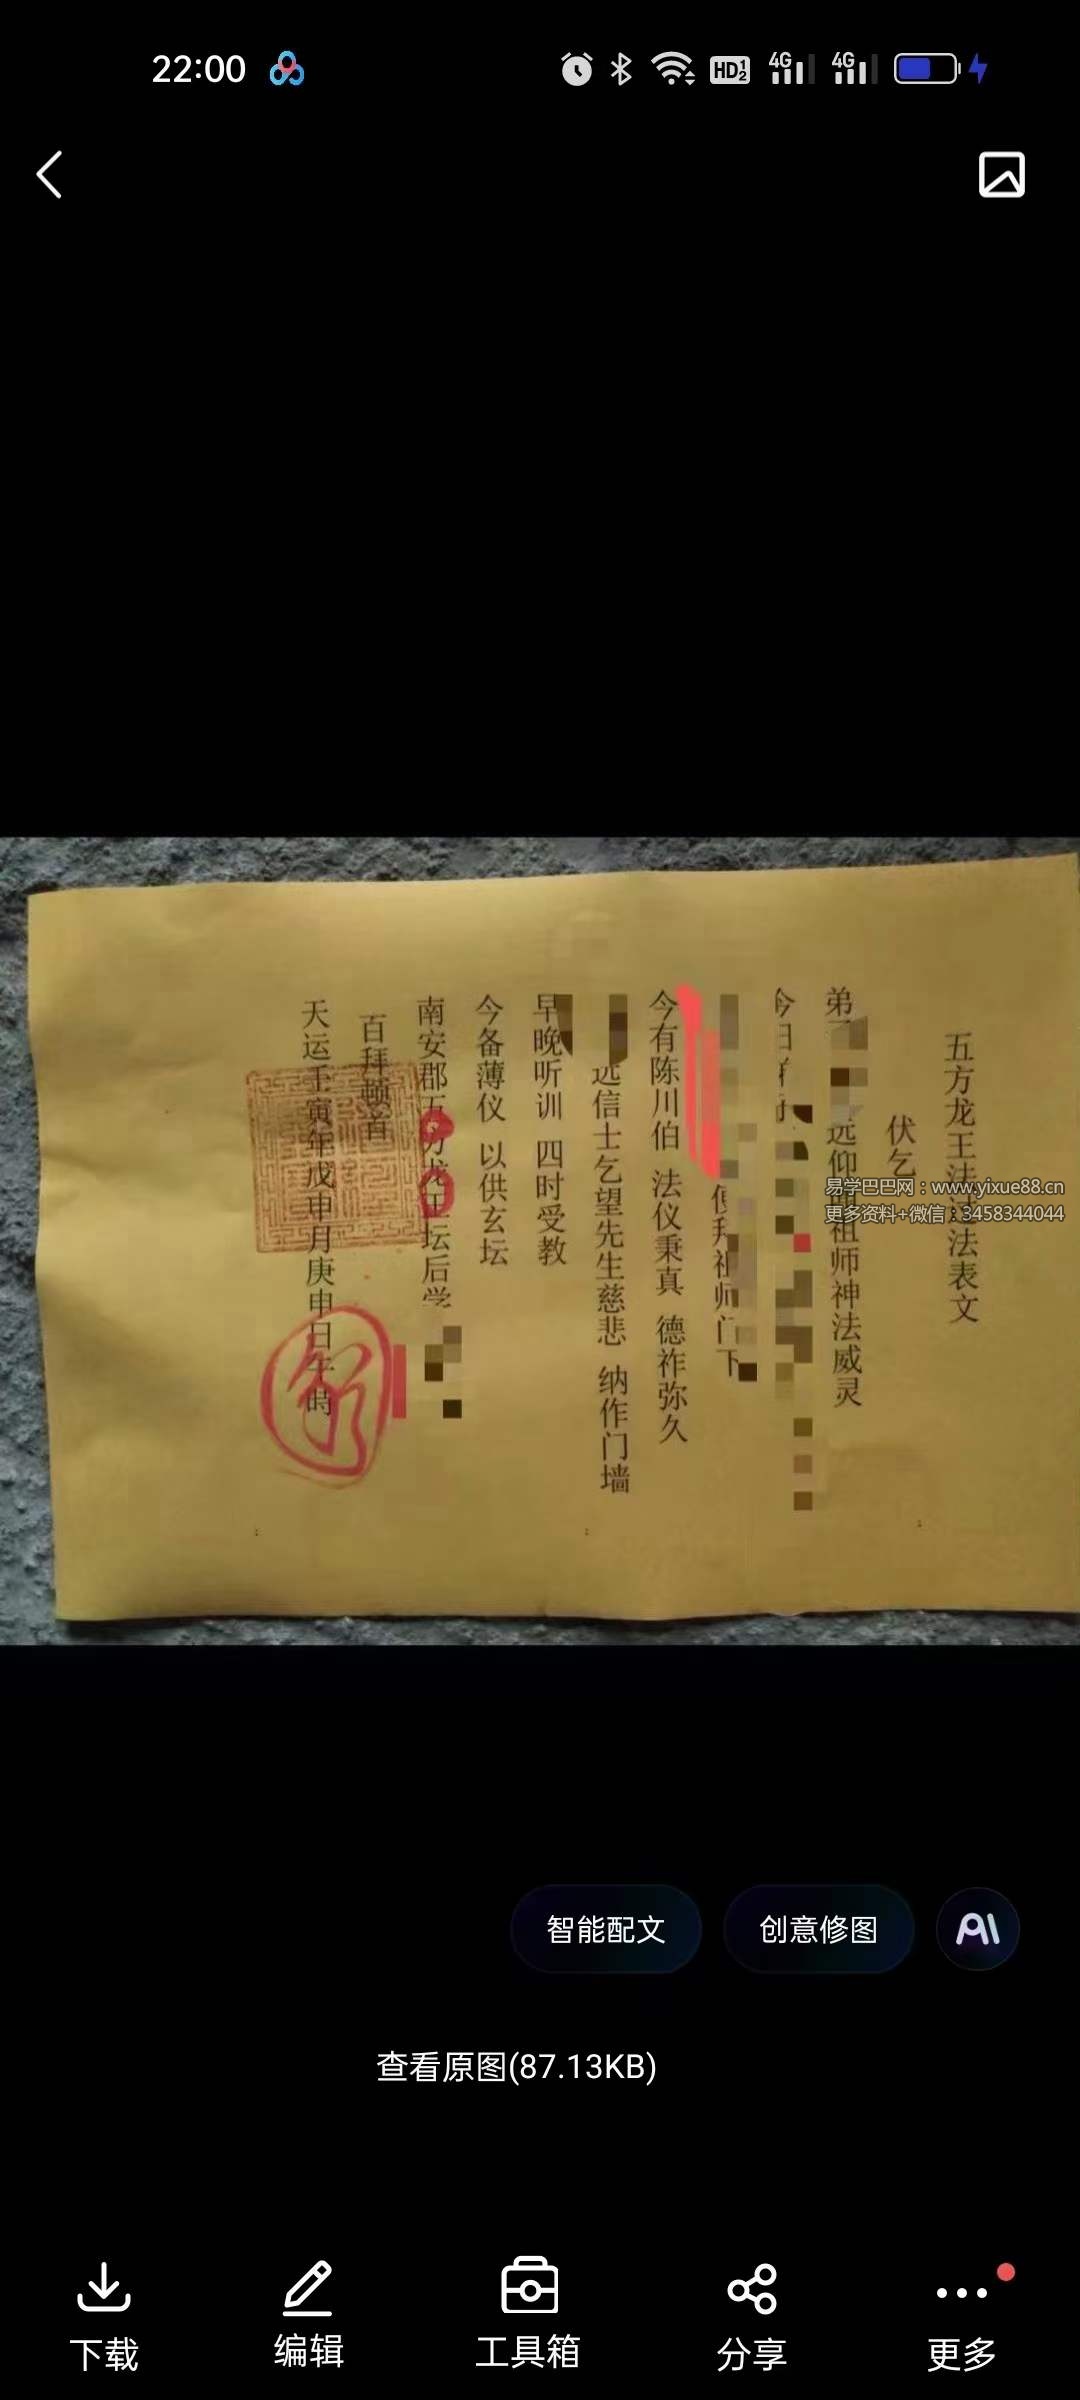 22:00
HD 1 2
4G
4G
五方龙王法过法表文
伏乞
弟
远仰祖师神法威灵
今日
祖师门下
今有陈川伯 法仪秉真 德祚弥久
远信士乞望先生慈悲 纳作门墙
早晚听训 四时受教
今备薄仪 以供玄坛
南安郡五方龙王坛后学
百拜顿首
天运壬寅年戊申月庚申日午時
易学巴巴网：www.yixue88.cn
更多资料+微信：3458344044
智能配文
创意修图
AI
查看原图(87.13KB)
下载
编辑
工具箱
分享
更多